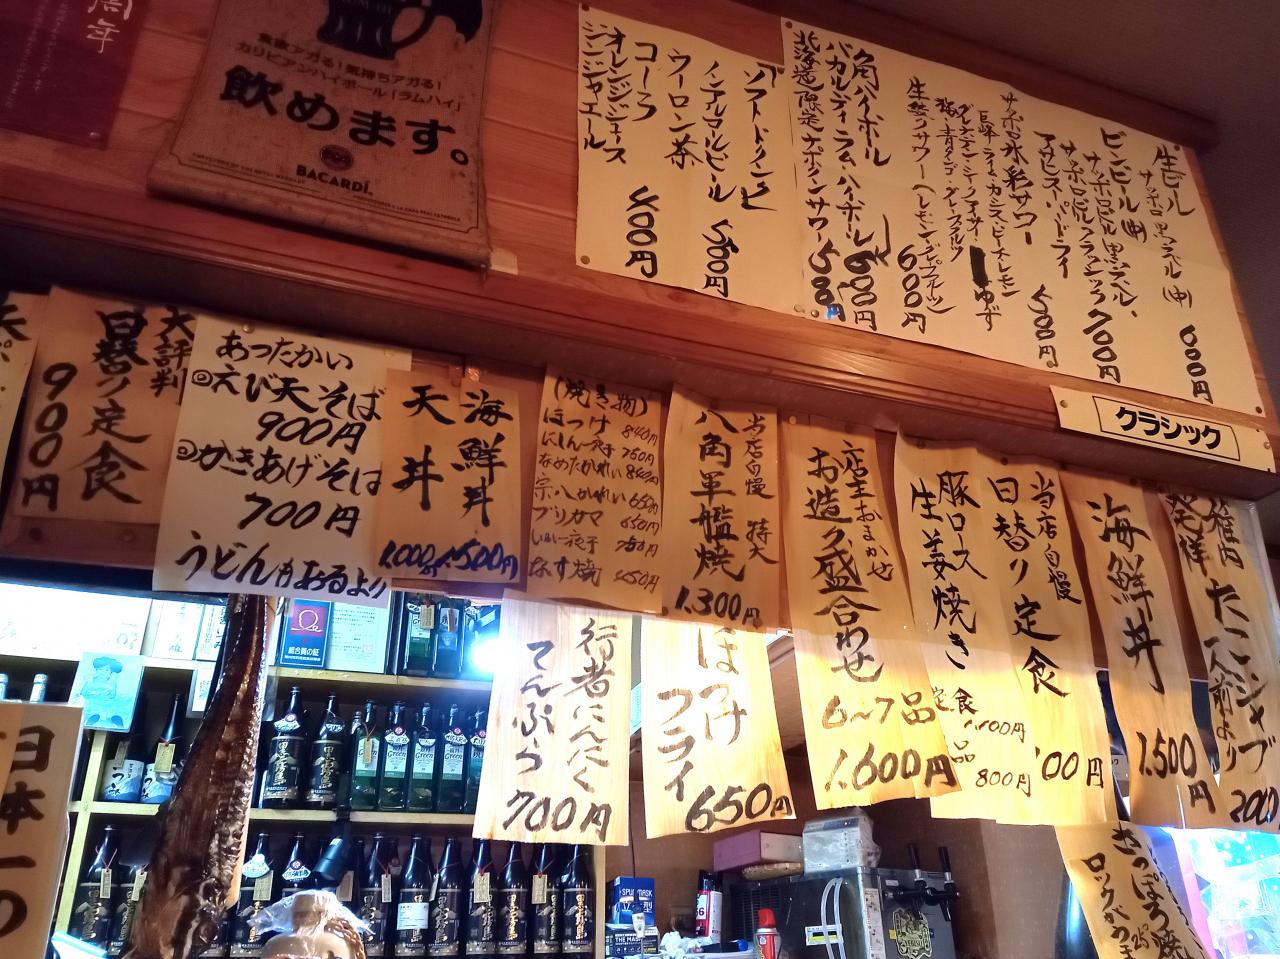 周年
食欲アガる!気持ちアガる!
カリビアンハイボール「ラムハイ」
飲めます。
BACARDÍ
生ビール
サッポロ黒ラベル(中) 600円
ビンビール(中)
サッポロビール黒ラベル、
サッポロビールクラシック 700円
アサヒスーパードライ
サッポロ氷彩サワー 500円
巨峰・ライム・カシス・ピーチ・レモン
ゆず
生絞りサワー(レモン・グレープフルーツ) 600円
角ハイボール
バカルディラムハイボール 600円
北海道限定ナポリンサワー 500円
ソフトドリンク
ノンアルコールビール 500円
ウーロン茶
コーラ 400円
オレンジジュース
ジンジャエール
クラシック
大評判
日替り定食
900円
あったかい
◎えび天そば
900円
◎かきあげそば
700円
うどんもあるよ
海鮮丼
天丼
1,000円 1,500円
(焼き物)
ほっけ 840円
にしん一夜干 750円
なめたかれい 840円
宗八かれい 650円
ブリカマ 650円
いか一夜干 750円
なす焼 450円
当店自慢 特大
八角軍艦焼
1,300円
店主おまかせ
お造り盛合わせ
6〜7品
1,600円
豚ロース
生姜焼き
定食
1,100円
単品
800円
当店自慢
日替り定食
00円
海鮮丼
1,500円
稚内
発祥
たこシャブ
一人前より
2000
行者にんにく
てんぷら
700円
ほっけ
フライ
650円
日本一の
組合員の証
Green
THE MASK